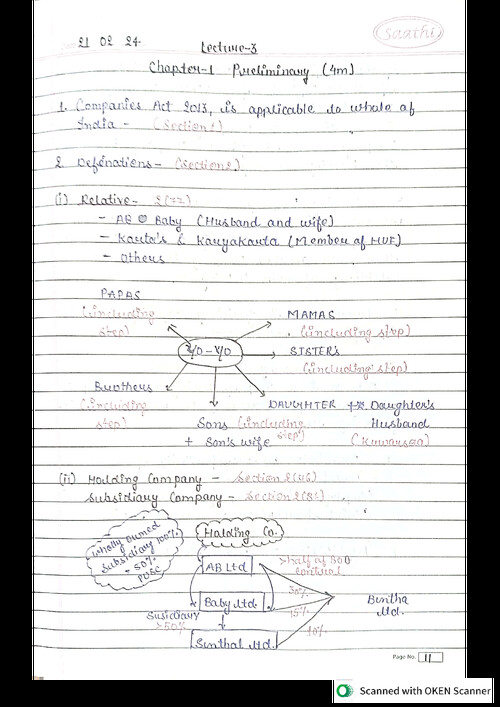 Saathi
21 02 24
Lecture-3
Chapter-1 Preliminary (4m)
1. Companies Act 2013, is applicable to whole of
India - (Section 1)
2 Defenations - (Section 2)
(i) Relative - 2(77)
- AB Baby (Husband and wife)
- Karta's & Karyakarta (Member of HUF)
- Others
PAPAS
(including
step)
MAMAS
(including step)
YO-YO
SISTER's
(including step)
Brothers
(including
step)
Sons (including
step)
+ Son's wife
DAUGHTER + Daughter's
Husband
(ii) Holding Company - Section 2(46)
Subsidiary Company - Section 2(87)
Wholly owned
Subsidiary 100%
50%
PUSC
Holding Co.
AB Ltd
>half of BOD
control
Baby Ltd.
30%
15%
10%
Susidiary
>50%
Ltd.
Ltd.
Page No. 11
Scanned with OKEN Scanner